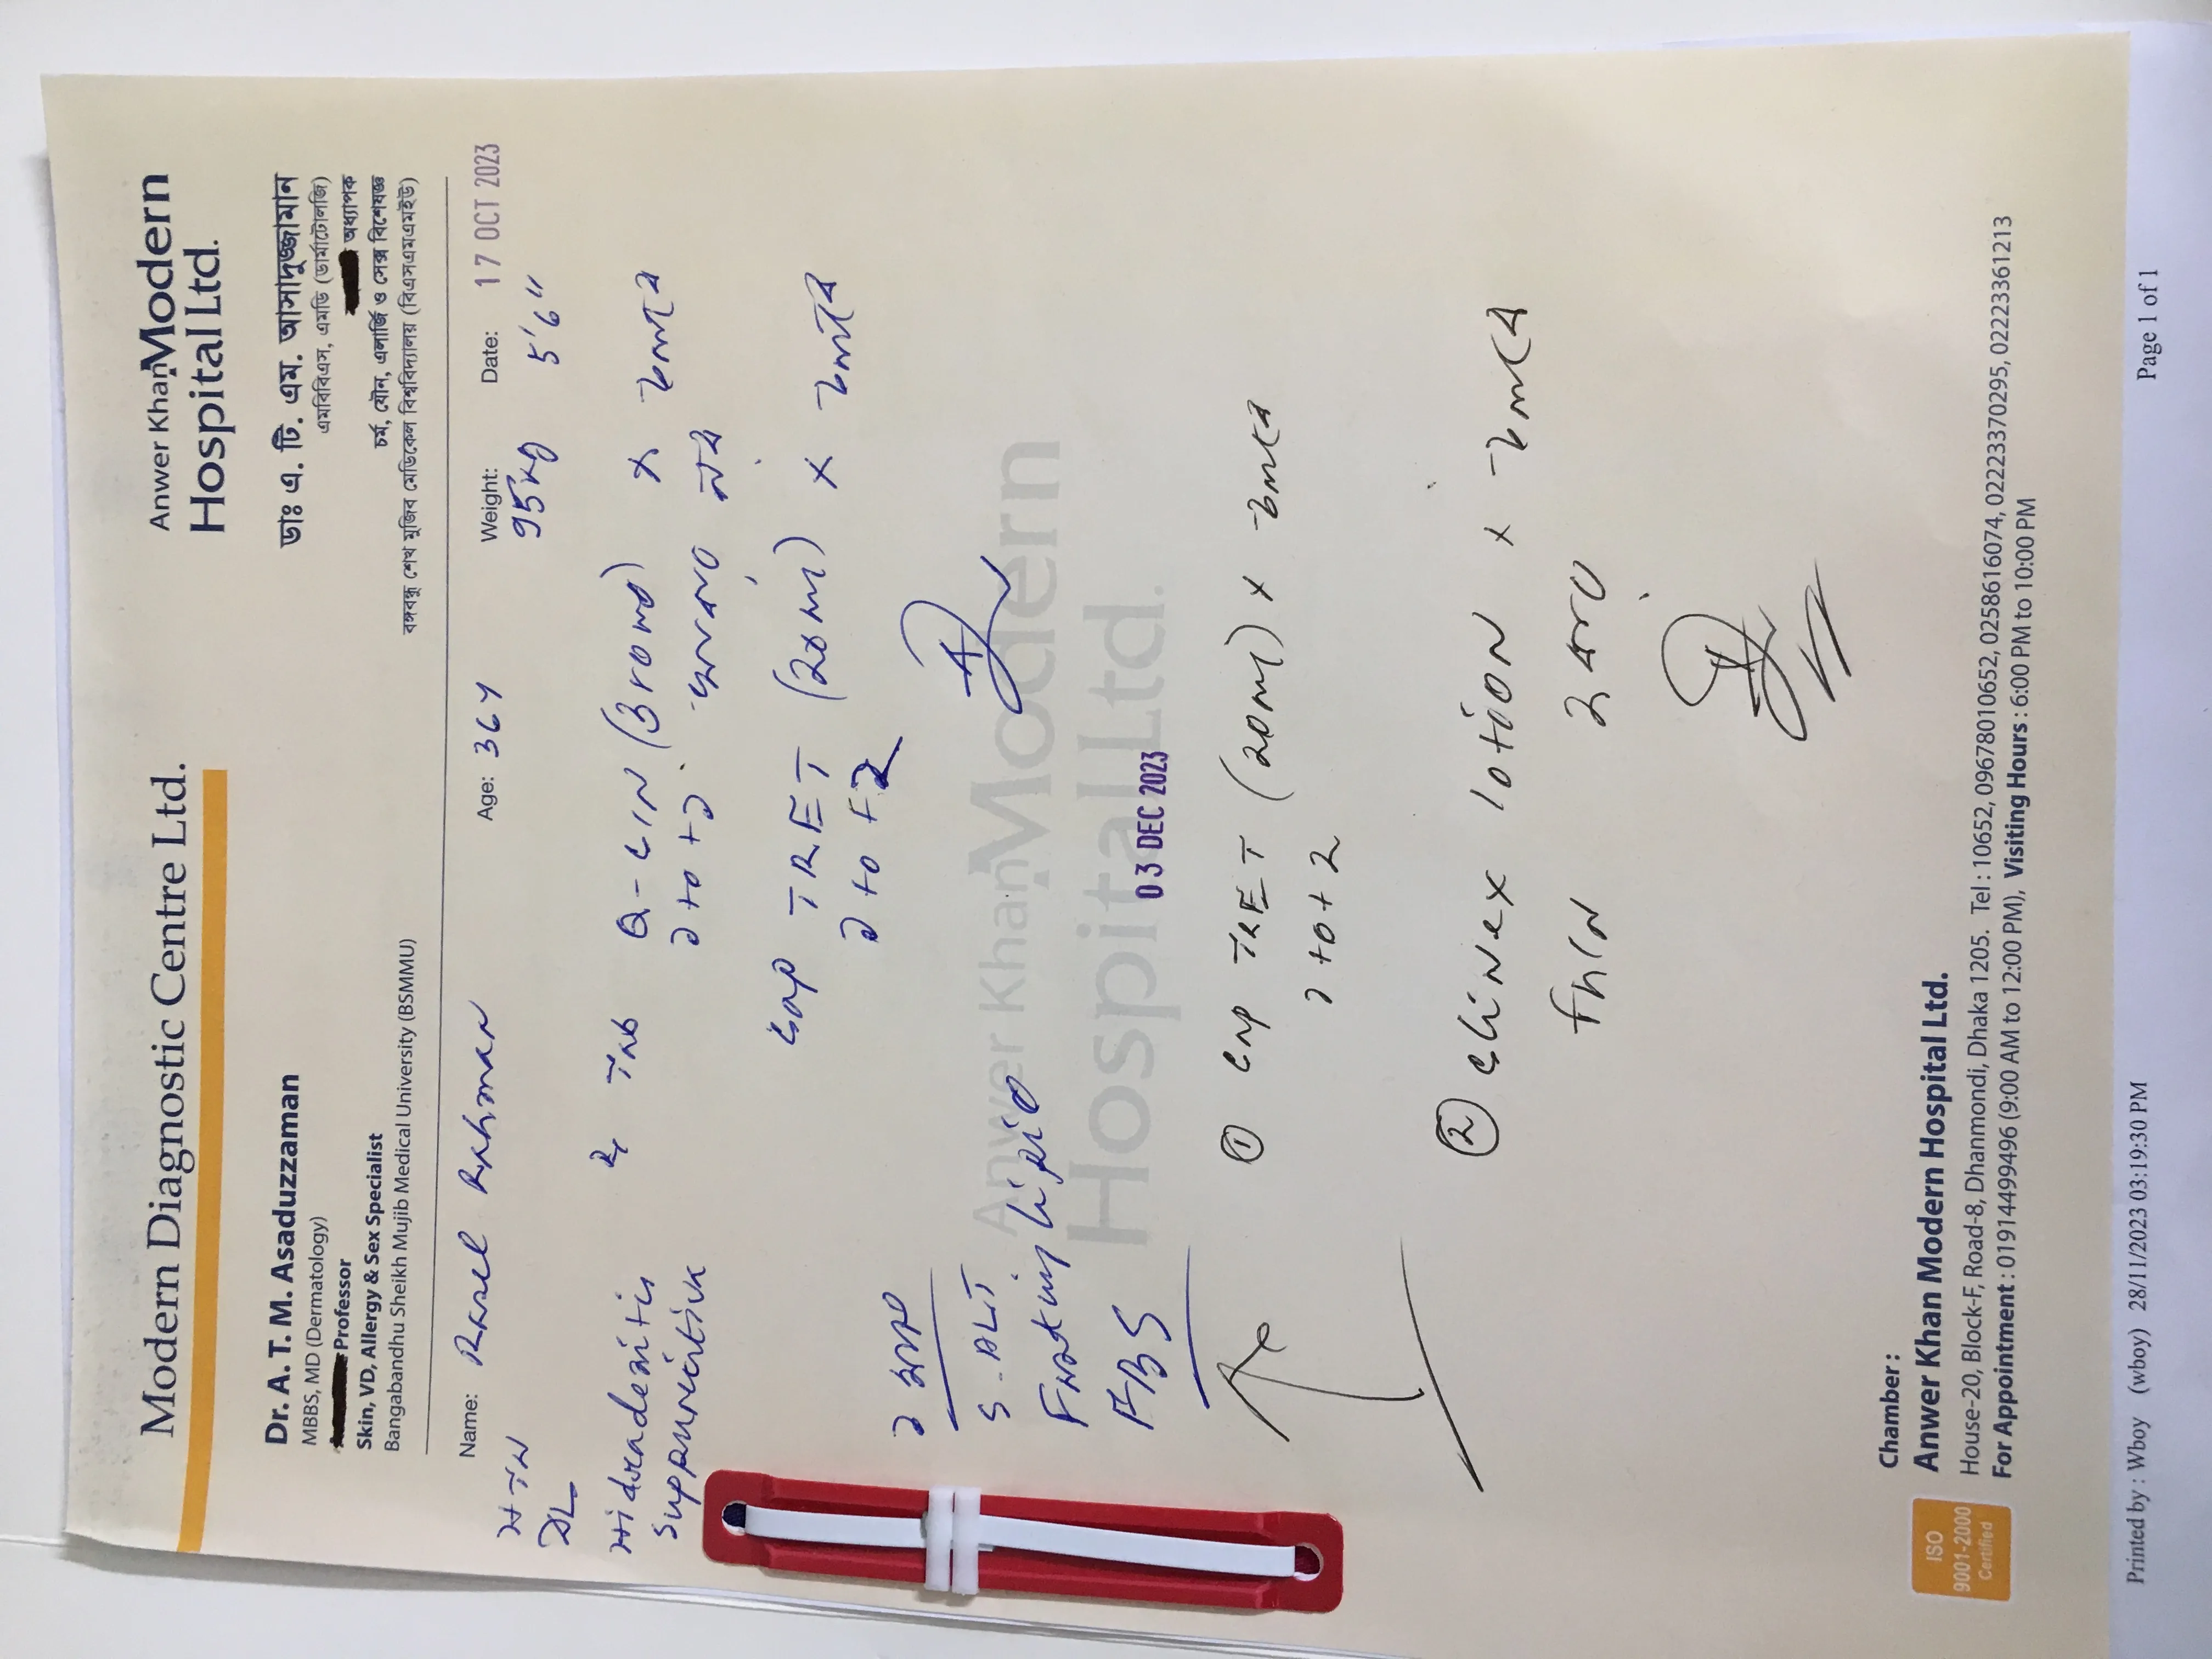 Modern Diagnostic Centre Ltd.
Anwer Khan Modern
Hospital Ltd.
Dr. A. T. M. Asaduzzaman
MBBS, MD (Dermatology)
Professor
Skin, VD, Allergy & Sex Specialist
Bangabandhu Sheikh Mujib Medical University (BSMMU)
ডাঃ এ. টি. এম. আসাদুজ্জামান
এমবিবিএস, এমডি (ডার্মাটোলজি)
অধ্যাপক
চর্ম, যৌন, এলার্জি ও সেক্স বিশেষজ্ঞ
বঙ্গবন্ধু শেখ মুজিব মেডিকেল বিশ্ববিদ্যালয় (বিএসএমএমইউ)
Name: Rasel Rahman Age: 36y Weight: 95kg Date: 17 OCT 2023
5'6"
HTN
DL
Hidradenitis
Suppurativa
Tab Q-CIN
Cap TRET (20mg) ×
S. ALT
Fasting Lipid
FBS
Anwer Khan Modern
Hospital Ltd.
03 DEC 2023
① Cap TRET (20mg) ×
② Clinex lotion ×
Chamber :
Anwer Khan Modern Hospital Ltd.
House-20, Block-F, Road-8, Dhanmondi, Dhaka 1205. Tel : 10652, 09678010652, 0258616074, 02223370295, 02223361213
For Appointment : 01914499496 (9:00 AM to 12:00 PM), Visiting Hours : 6:00 PM to 10:00 PM
ISO
9001-2000
Certified
Printed by : Wboy (wboy) 28/11/2023 03:19:30 PM Page 1 of 1